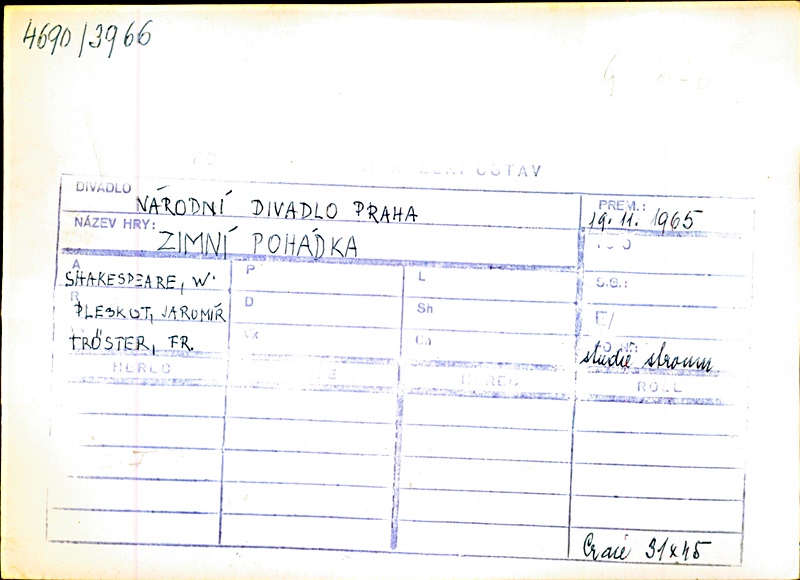 4690/3966
ÚSTAV
DIVADLO NÁRODNÍ DIVADLO PRAHA
PREM.: 19. 11. 1965
NÁZEV HRY: ZIMNÍ POHÁDKA
A SHAKESPEARE, W. P L S.G.:
R PLESKOT, JAROMÍR D Sh E/
TRÖSTER, FR. studie stromu
HEREC ROLE HEREC ROLE
31x45